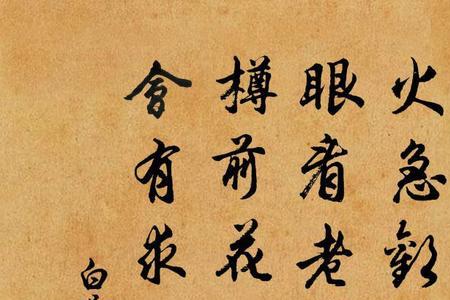 火急歡
眼看老
樽前花
會有求
白